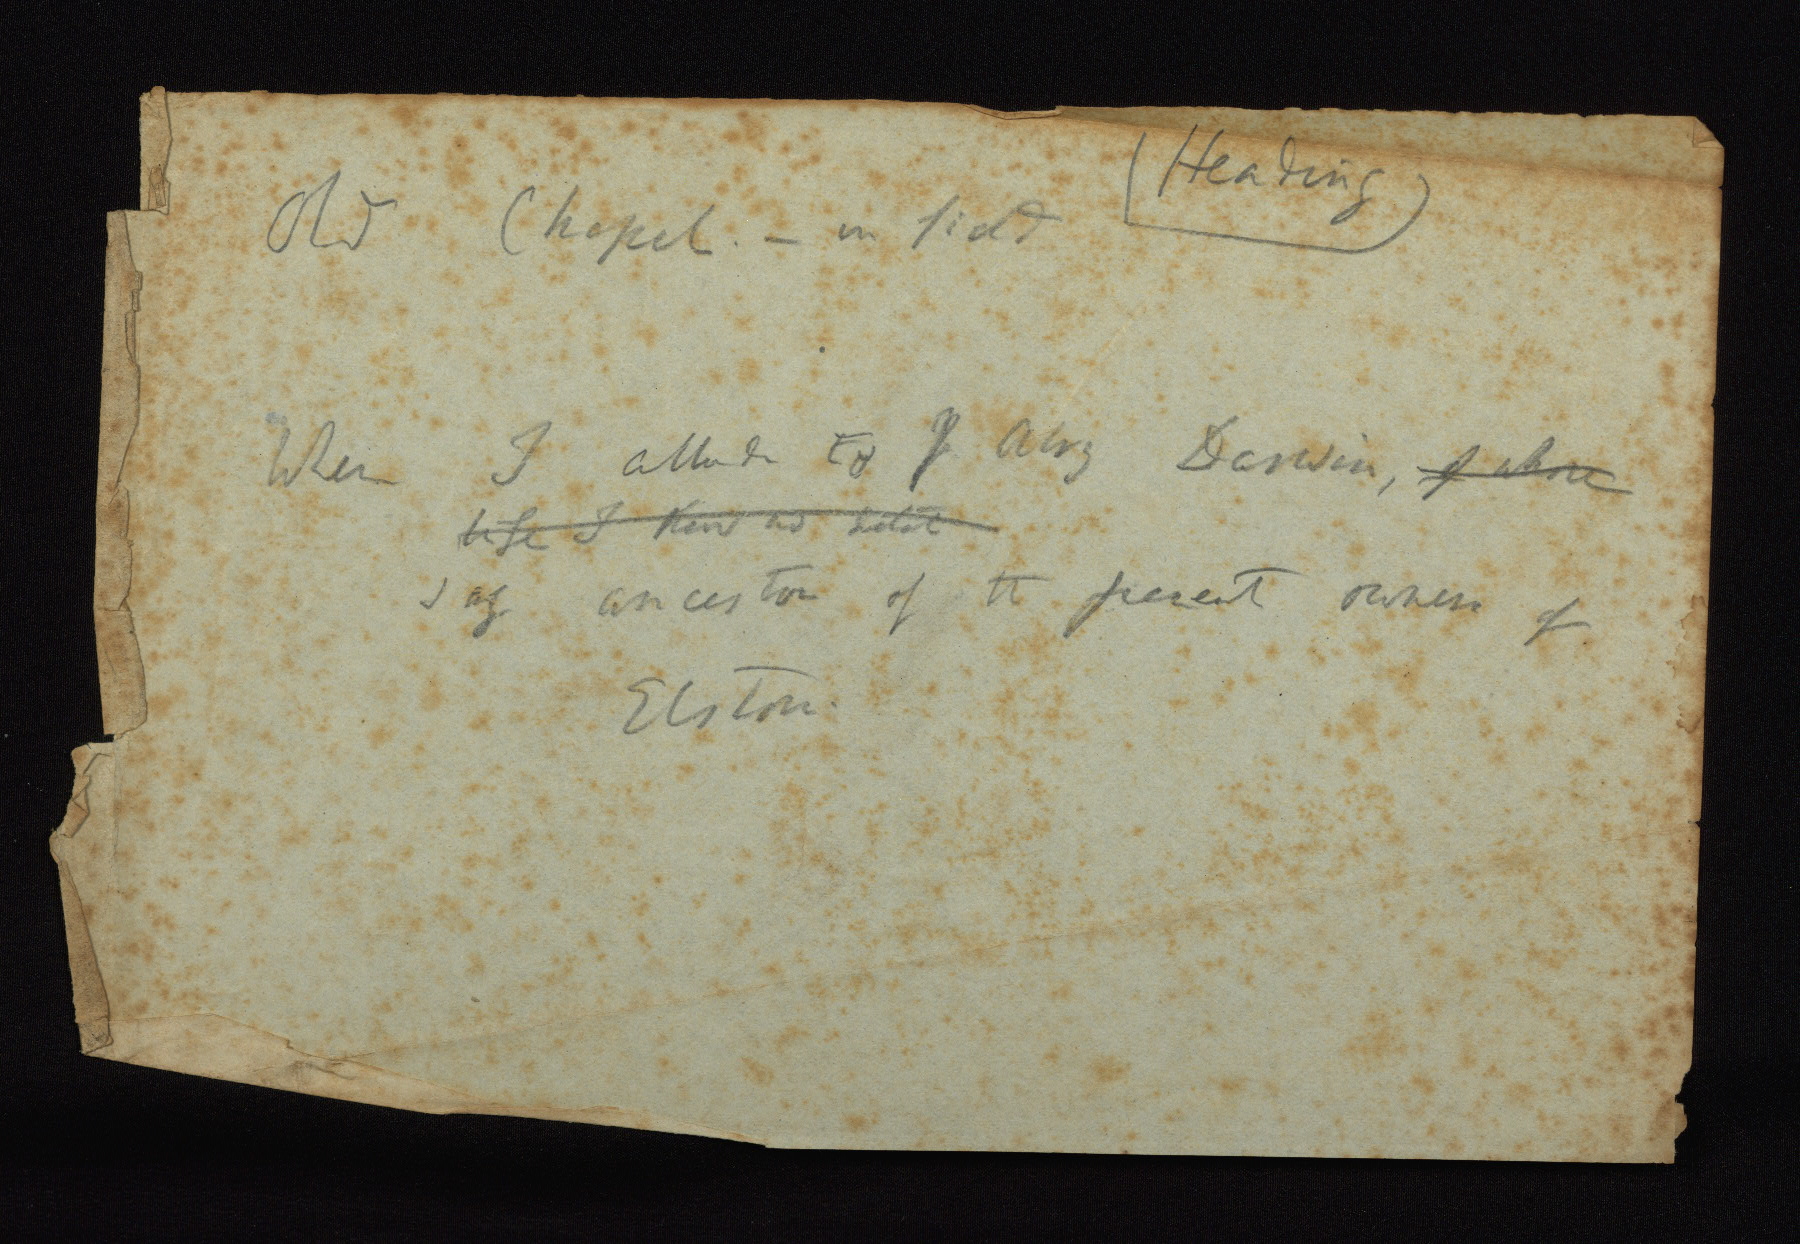 (Heading)
Old Chapel. — in field
When I allude to Alvey Darwin, of whose
life I know no
say ancestor of the present owners of
Elston.